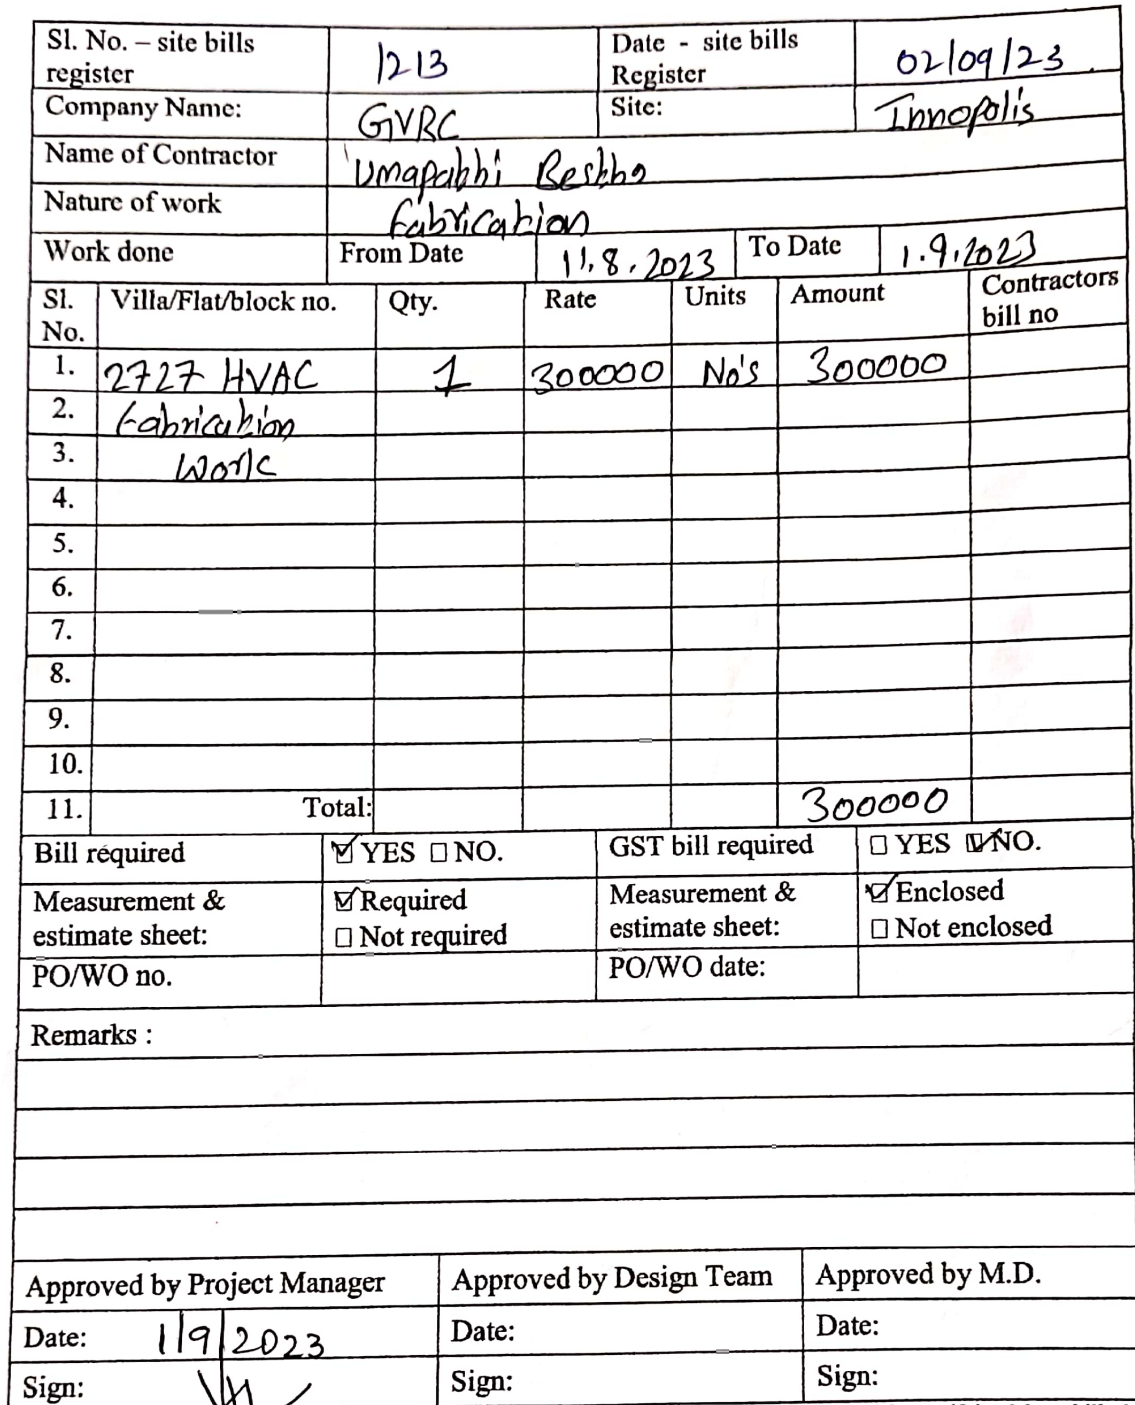 Sl. No. – site bills register 1213 Date - site bills Register 02/09/23
Company Name: GVRC Site: Innopolis
Name of Contractor Umapabhi Beshha
Nature of work Fabrication
Work done From Date 11.8.2023 To Date 1.9.2023
Sl. No. Villa/Flat/block no. Qty. Rate Units Amount Contractors bill no
1. 2727 HVAC 1 300000 No's 300000
2. Fabrication
3. Work
4.
5.
6.
7.
8.
9.
10.
11. Total: 300000
Bill required ☑ YES ☐ NO. GST bill required ☐ YES ☑ NO.
Measurement & estimate sheet: ☑ Required ☐ Not required Measurement & estimate sheet: ☑ Enclosed ☐ Not enclosed
PO/WO no. PO/WO date:
Remarks :
Approved by Project Manager Approved by Design Team Approved by M.D.
Date: 1/9/2023 Date: Date:
Sign: Sign: Sign: